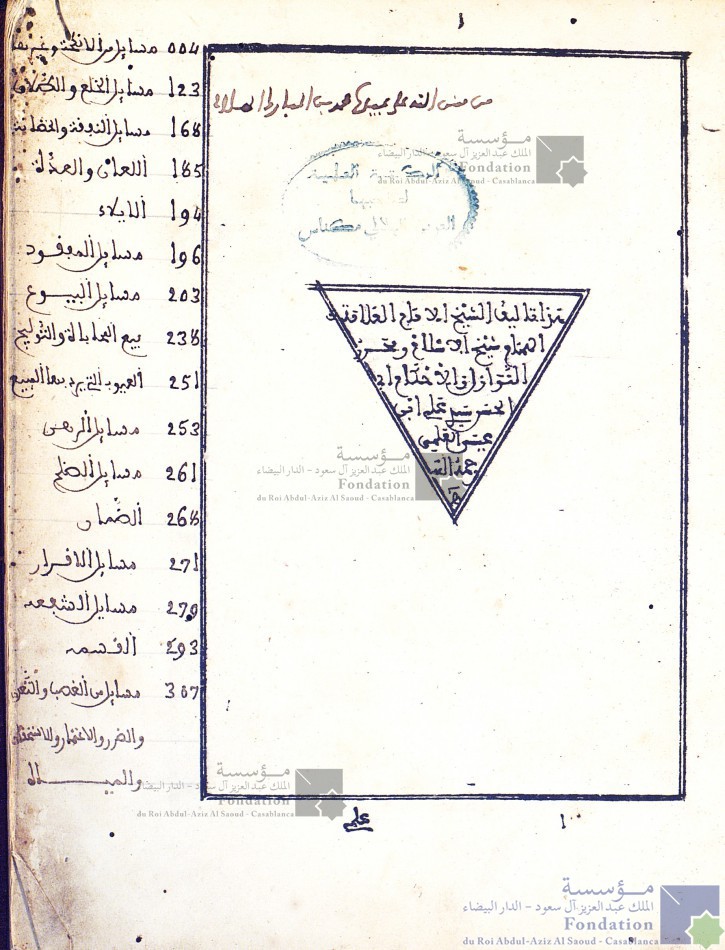 1
من من الله على عبيده محمد بن المبارك الهلالي
المكتبة العلمية
لصاحبها
الهلالي مكناس
هذا تاليف الشيخ الامام العلامة
الهمام شيخ الاسلام ومحرز
النوازل والاحكام ابي
الحسن سيدي علي ابن
عيسى العلمي
رحمه الله
004 مسايل من الانكحة وغيرها
123 مسايل الخلع و
168 مسايل النفقة والحضانة
185 اللعان والعدة
194 الايلاء
196 مسايل المفقود
203 مسايل البيوع
238 بيع المحاباة والتوليج
251 العيوب التي يرد بها المبيع
253 مسايل الرهن
261 مسايل الصلح
268 الضمان
271 مسايل الاقرار
279 مسايل الشفعه
293 القسمه
307 مسايل من الغصب والتعدي
والضرر والاعتمار والاستحقاق
والميـــاه
علمي
1
مؤسسة
الملك عبد العزيز آل سعود - الدار البيضاء
Fondation
du Roi Abdul-Aziz Al Saoud - Casablanca
مؤسسة
الملك عبد العزيز آل سعود - الدار البيضاء
Fondation
du Roi Abdul-Aziz Al Saoud - Casablanca
مؤسسة
الملك عبد العزيز آل سعود - الدار البيضاء
Fondation
du Roi Abdul-Aziz Al Saoud - Casablanca
مؤسسة
الملك عبد العزيز آل سعود - الدار البيضاء
Fondation
du Roi Abdul-Aziz Al Saoud - Casablanca